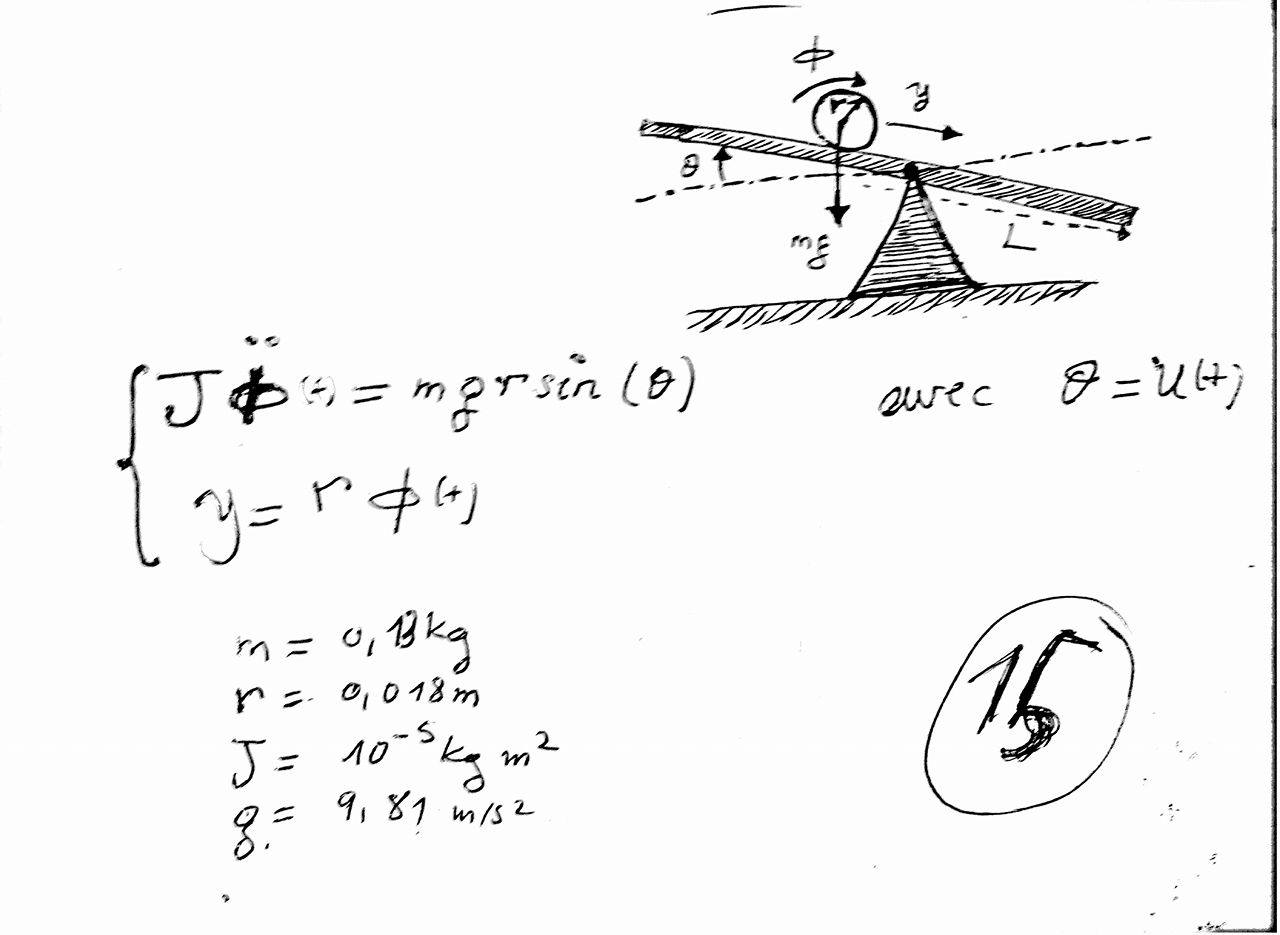 ϕ
r
y
θ
mg
L
J ϕ̈(t) = mgr sin(θ) avec θ = u(t)
y = r ϕ(t)
m = 0,13 kg
r = 0,018 m
J = 10⁻⁵ kg m²
g = 9,81 m/s²
15